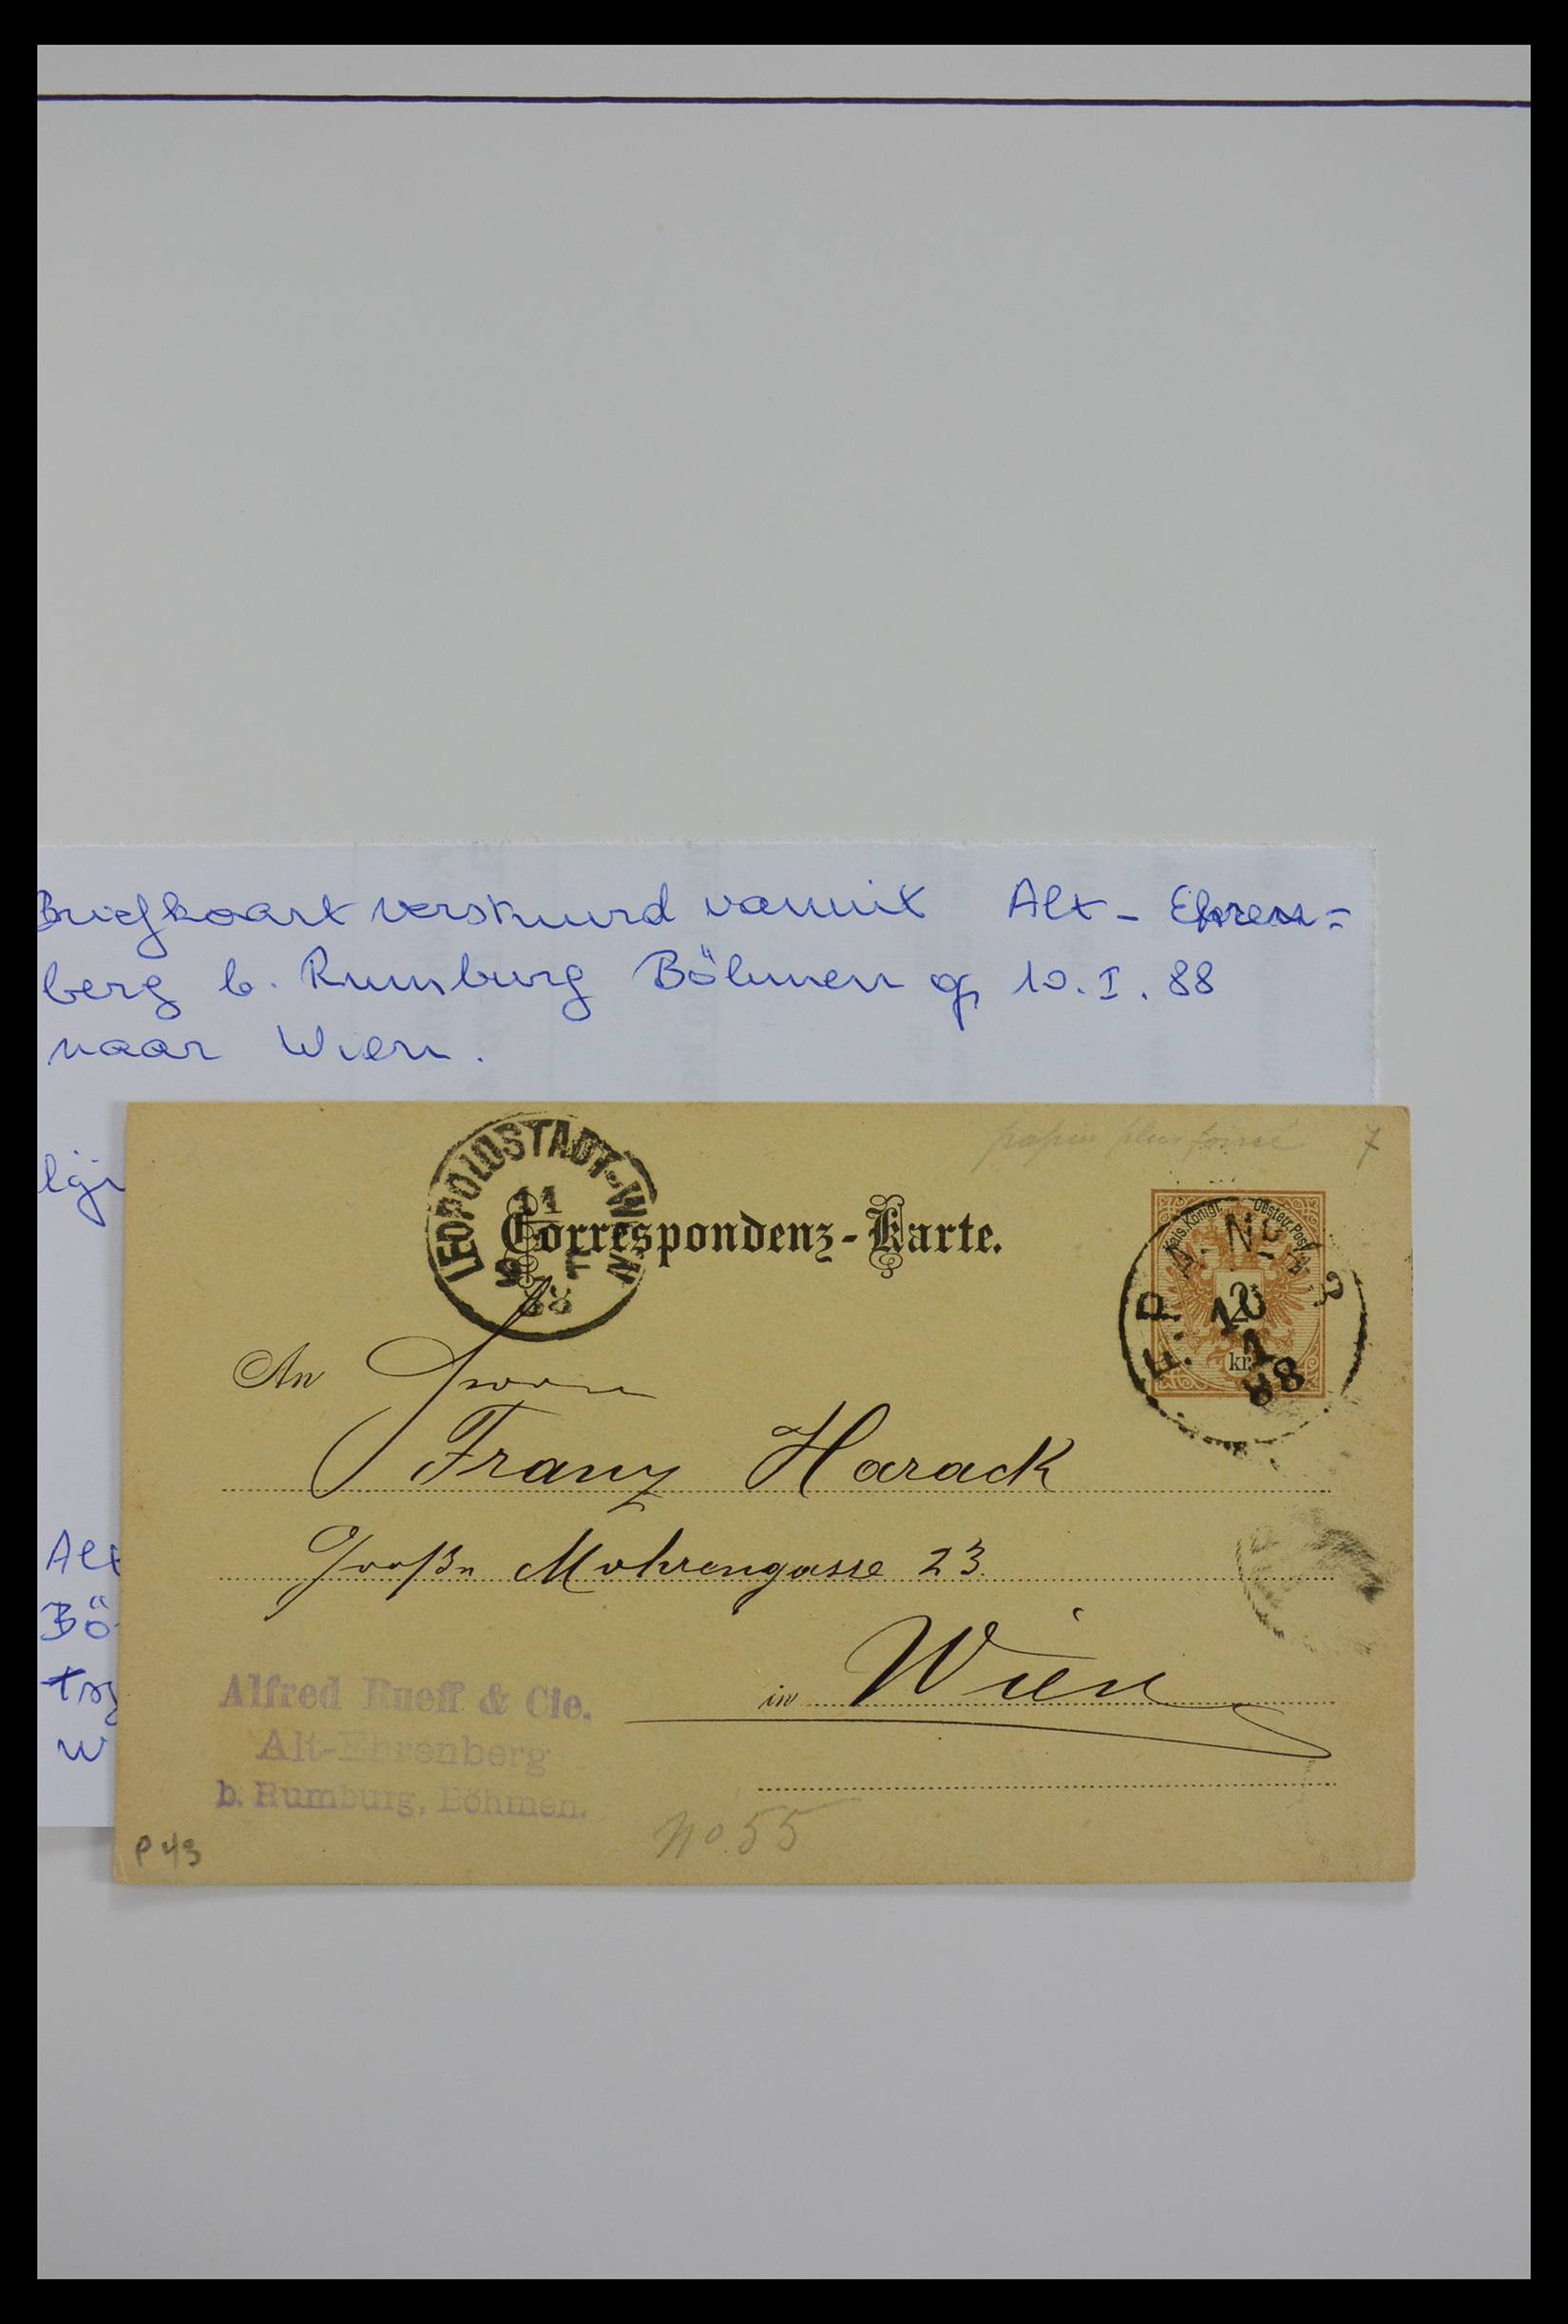 Briefkaart verstuurd vanuit Alt - Ehren=
berg b. Rumburg Böhmen op 10.I.88
naar Wien.
papier plus foncé 7
LEOPOLDSTADT-WIEN
11
1
88
Correspondenz-Karte.
Kais. Königl. Oesterr. Post
2
kr.
F.P.A. No
10
1
88
An Herrn
Franz Harack
Große Mohrengasse 23.
in Wien
Alfred Rueff & Cie.
Alt-Ehrenberg
b. Rumburg, Böhmen.
No 55
P 43
Alt
Bö
W